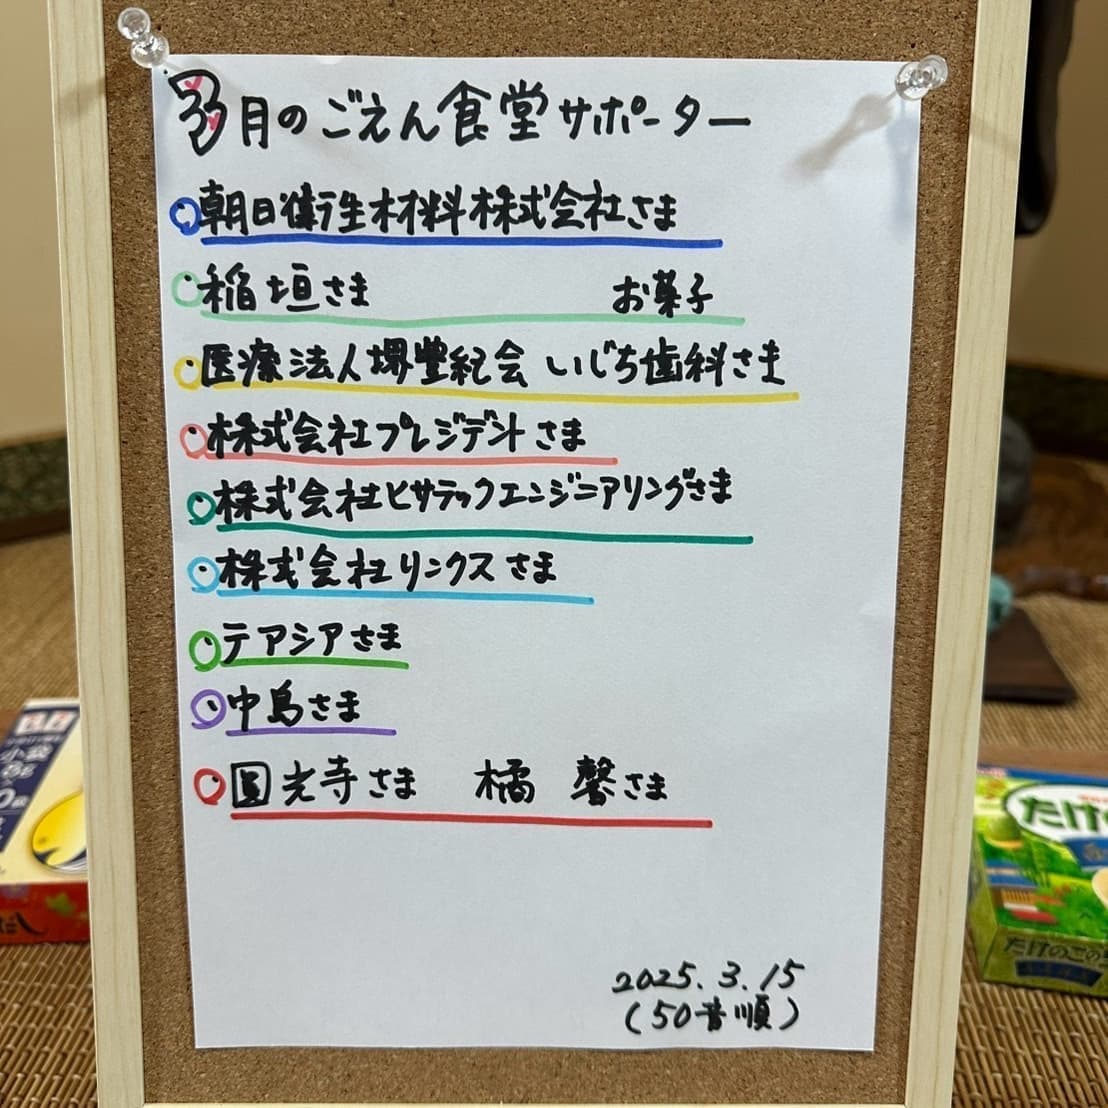 3月のごえん食堂サポーター
朝日衛生材料株式会社さま
稲垣さま お菓子
医療法人堺豊紀会 いじち歯科さま
株式会社プレジデントさま
株式会社ヒサテックエンジニアリングさま
株式会社リンクスさま
テアシアさま
中島さま
圓光寺さま 橘 馨さま
2025.3.15
(50音順)
小袋
たけの
たけのこの